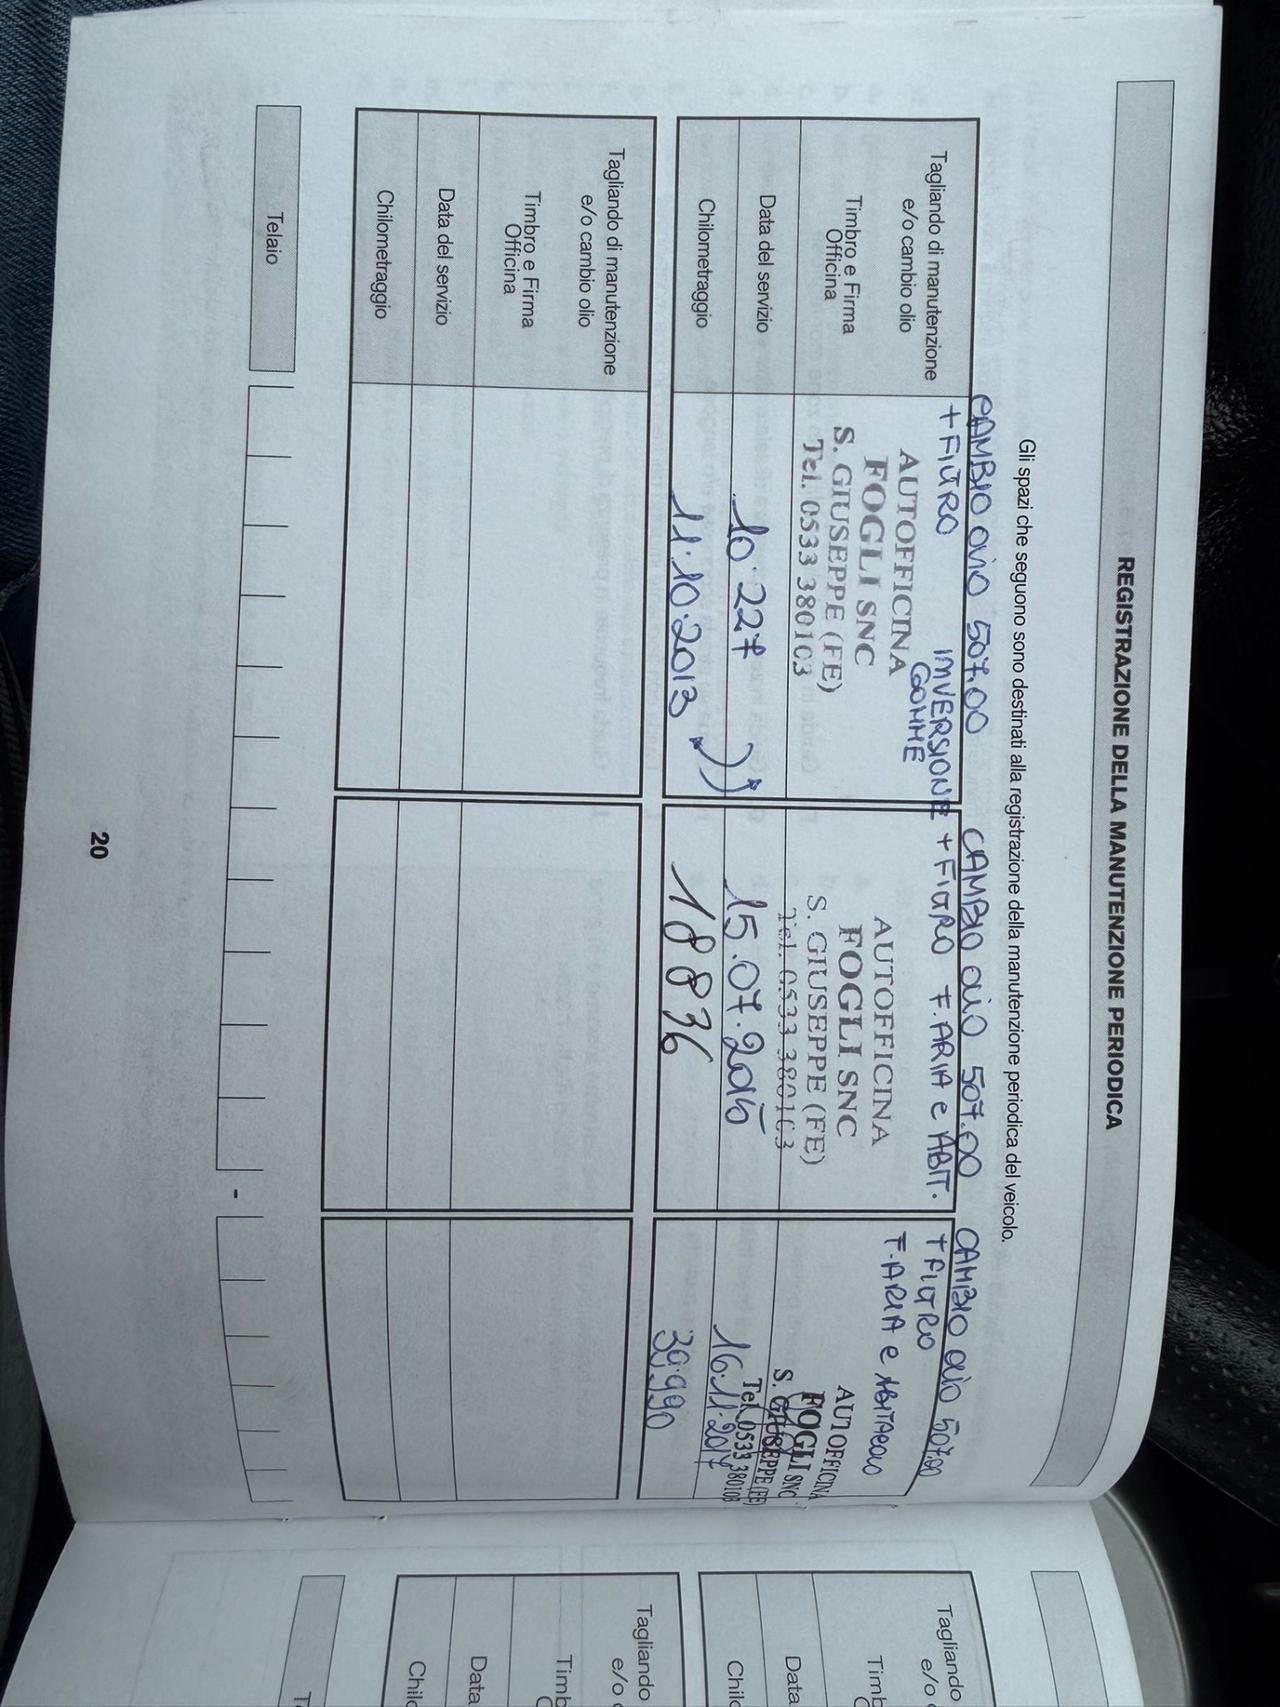 REGISTRAZIONE DELLA MANUTENZIONE PERIODICA
Gli spazi che seguono sono destinati alla registrazione della manutenzione periodica del veicolo.
Tagliando di manutenzione
e/o cambio olio
CAMBIO OLIO 507.00
+ FILTRO INVERSIONE
GOMME
CAMBIO OLIO 507.00
+ FILTRO F. ARIA e ABIT.
CAMBIO OLIO 507.00
+ FILTRO
F. ARIA e ABITACOLO
Timbro e Firma
Officina
AUTOFFICINA
FOGLI SNC
S. GIUSEPPE (FE)
Tel. 0533 380103
AUTOFFICINA
FOGLI SNC
S. GIUSEPPE (FE)
Tel. 0533 380103
AUTOFFICINA
FOGLI SNC
S. GIUSEPPE (FE)
Tel. 0533 380103
Data del servizio
10.227
15.07.2015
16.11.2017
Chilometraggio
11.10.2013
18836
39.990
Tagliando di manutenzione
e/o cambio olio
Timbro e Firma
Officina
Data del servizio
Chilometraggio
Telaio
-
20
Tagliando
e/o
Timb
Data
Chil
Tagliando
e/o
Timb
Data
Chil